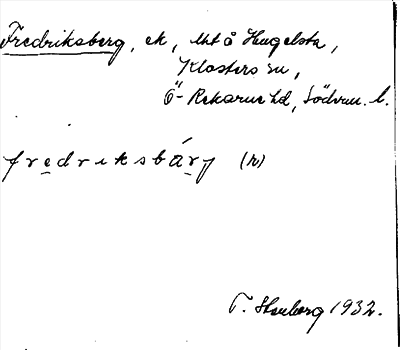 Fredriksberg, ek, utå Hugelsta,
Klosters sn,
Ö-Rekarne hd, Södverm. l.
fredriksbárj (h)
T. Stenberg 1932.